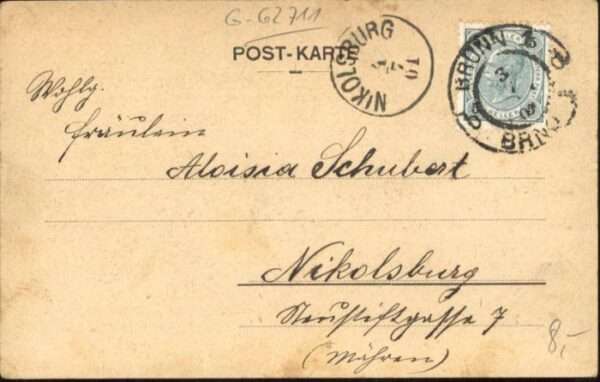 G-62711
POST-KARTE
NIKOLSBURG
BRÜNN
BRNO
Wohlg.
Fräulein
Aloisia Schubert
Nikolsburg
Neustiftgasse 7
(Mähren)
8,-